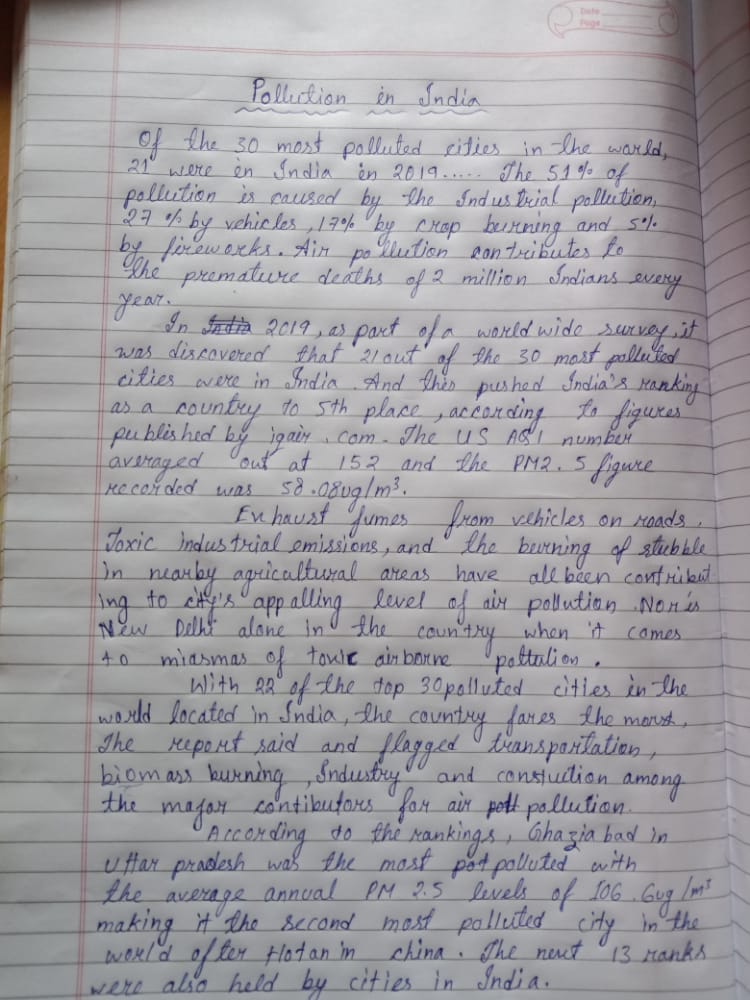 Date
Page
Pollution in India
Of the 30 most polluted cities in the world,
21 were in India in 2019..... The 51% of
pollution is caused by the Industrial pollution,
27 % by vehicles, 17% by crop burning and 5%
by fireworks. Air pollution contributes to
the premature deaths of 2 million Indians every
year.
In India 2019, as part of a world wide survey, it
was discovered that 21 out of the 30 most polluted
cities were in India. And this pushed India's ranking
as a country to 5th place, according to figures
published by iqair.com. The US AQI number
averaged out at 152 and the PM2.5 figure
recorded was 58.08ug/m³.
Exhaust fumes from vehicles on roads.
Toxic industrial emissions, and the burning of stubble
in nearby agricultural areas have all been contribut
ing to city's appalling level of air pollution. Nor is
New Delhi alone in the country when it comes
to miasmas of toxic airborne poltulion.
With 22 of the top 30 polluted cities in the
world located in India, the country fares the morst,
The report said and flagged transportation,
biomass burning, Industry and constuction among
the major contibutors for air poll pollution.
According to the rankings, Ghaziabad in
Uttar pradesh was the most pot polluted with
the average annual PM 2.5 levels of 106.6ug/m³
making it the second most polluted city in the
world after Hotan in china. The next 13 ranks
were also held by cities in India.